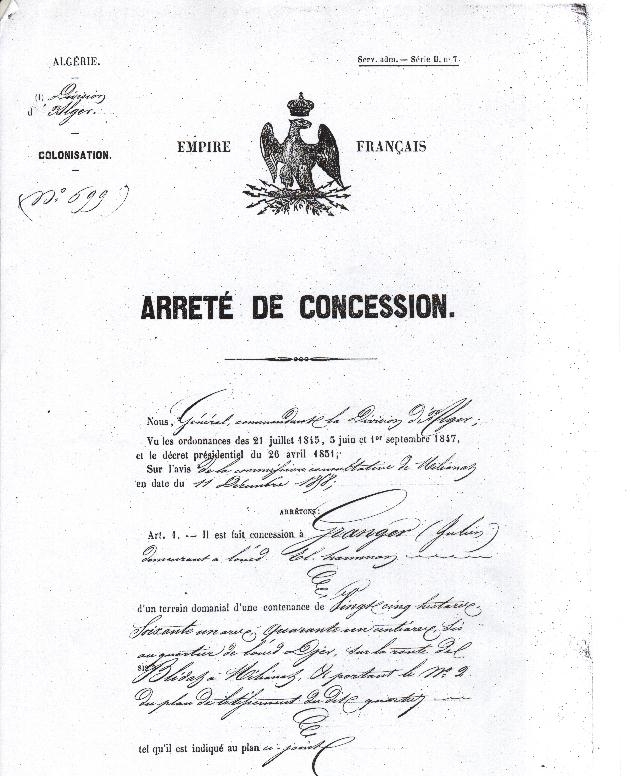 ALGÉRIE.
Serv. adm. — Série D. n° 7.
(1) Division
d'Alger.
COLONISATION.
(N° 699)
EMPIRE FRANÇAIS
ARRETÉ DE CONCESSION.
Nous, Général, commandant la Division d'Alger;
Vu les ordonnances des 21 juillet 1845, 5 juin et 1er septembre 1847,
et le décret présidentiel du 26 avril 1851;
Sur l'avis de la commission consultative de Milianah
en date du 11 Décembre 1858;
ARRÊTONS:
Art. 1. — Il est fait concession à Granger (Julien)
demeurant à l'oued El. hammam
d'un terrain domanial d'une contenance de Vingt cinq hectares,
Soixante un ares, Quarante un centiares, sis
au quartier de l'oued Djer, sur la route de
Blidah à Milianah, et portant le N° 2
du plan de lotissement du dit quartier
tel qu'il est indiqué au plan ci-joint